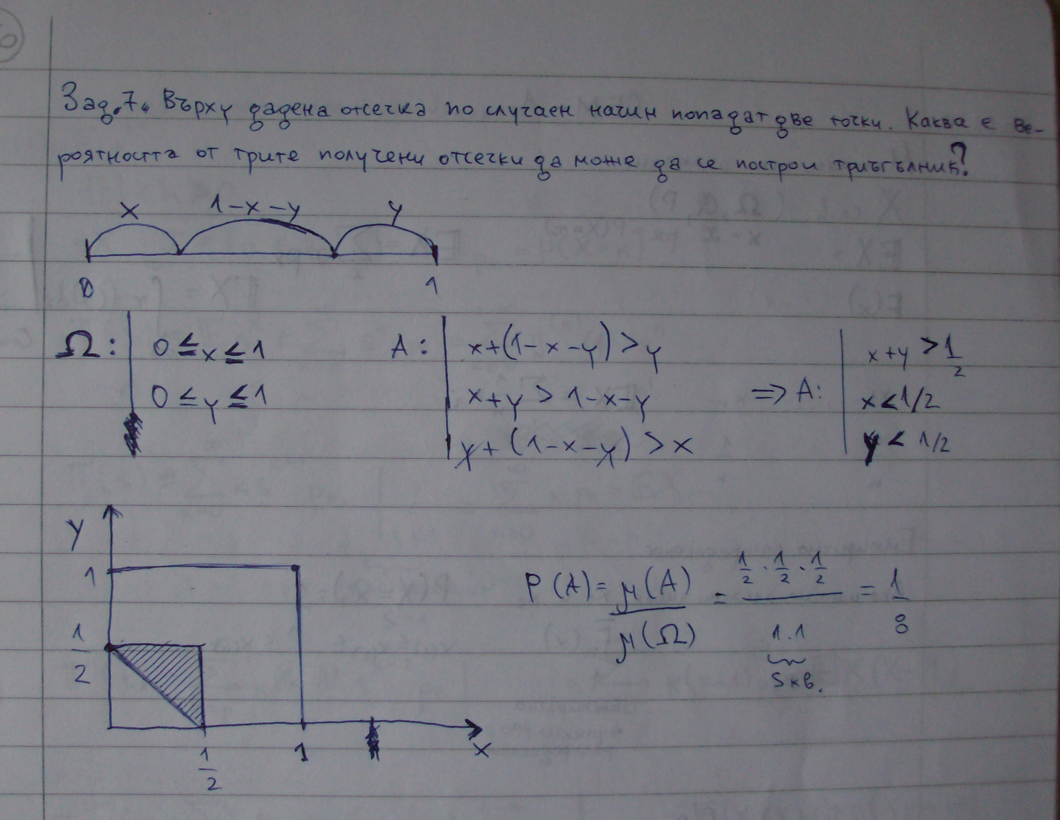 Зад.7. Върху дадена отсечка по случаен начин попадат две точки. Каква е ве-
роятността от трите получени отсечки да може да се построи триъгълник?
x 1-x-y y
0 1
Ω: 0 ≤ x ≤ 1 A: x+(1-x-y) > y x+y > 1/2
0 ≤ y ≤ 1 x+y > 1-x-y => A: x < 1/2
y+(1-x-y) > x y < 1/2
y
1
1/2
1/2 1 x
P(A) = μ(A)/μ(Ω) = (1/2 · 1/2 · 1/2)/(1.1) = 1/8
Sкв.